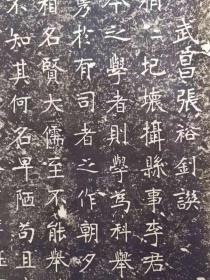 武昌張裕釗譔
圮壞攝縣事李君
本之學者則學為科舉
於有司者之作朝夕
相名賢大儒至不能舉
不知其何名卑陋苟且